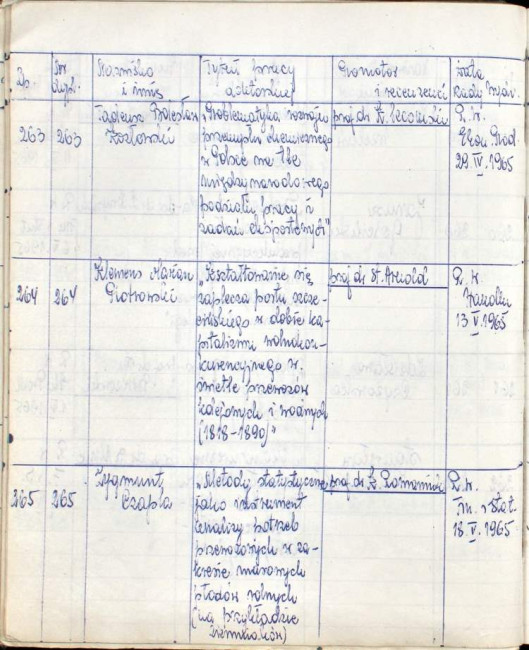 Lp. Nr dypl. Nazwisko i imię Tytuł pracy doktorskiej Promotor i recenzenci Data Rady Wydz.
263 263 Tadeusz Bolesław Kozłowski
"Problematyka rozwoju
przemysłu chemicznego
w Polsce na tle
międzynarodowego
podziału pracy i
zadań eksportowych"
prof. dr
R. W.
Ekon. Prod.
29.IV.1965
264 264 Klemens Marian Piotrowski
"Kształtowanie się
zaplecza portu szcze-
cińskiego w dobie ka-
pitalizmu wolnokon-
kurencyjnego w
świetle przewozów
kolejowych i wodnych
(1818-1890)"
prof. dr St. Arnold
R. W.
Handlu
13.V.1965
265 265 Zygmunt Czapla
"Metody statystyczne
jako instrument
analizy potrzeb
przewozowych w za-
kresie masowych
płodów rolnych
(na przykładzie
ziemniaków)
prof. dr
R. W.
Fin. i Stat.
18.V.1965